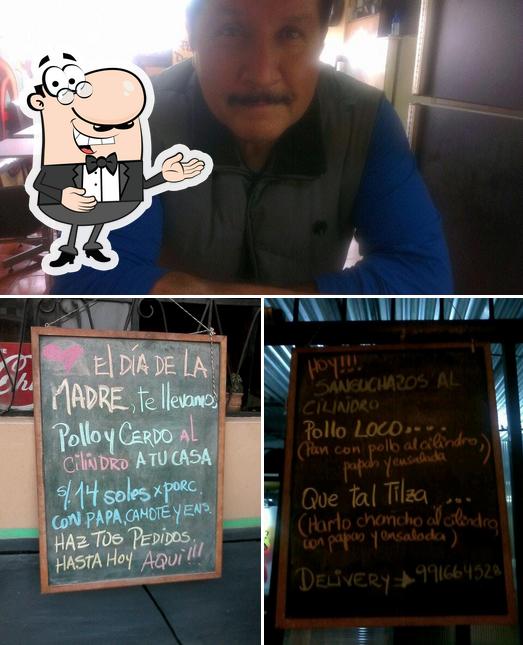 El DÍA DE LA
MADRE, te llevamos
Pollo y CERDO AL
CILINDRO A TU CASA
s/. 14 soles x porc.
CON PAPA, CAMOTE Y ENS.
HAZ TUS PEDIDOS.
HASTA HOY AQUI!!!
HOY!!!
SANGUCHAZOS AL
CILINDRO
Pollo LOCO....
(Pan con pollo al cilindro,
papas y ensalada
Que tal Tilza ...
(Harto chancho al cilindro,
con papas y ensalada)
DELIVERY 991664528